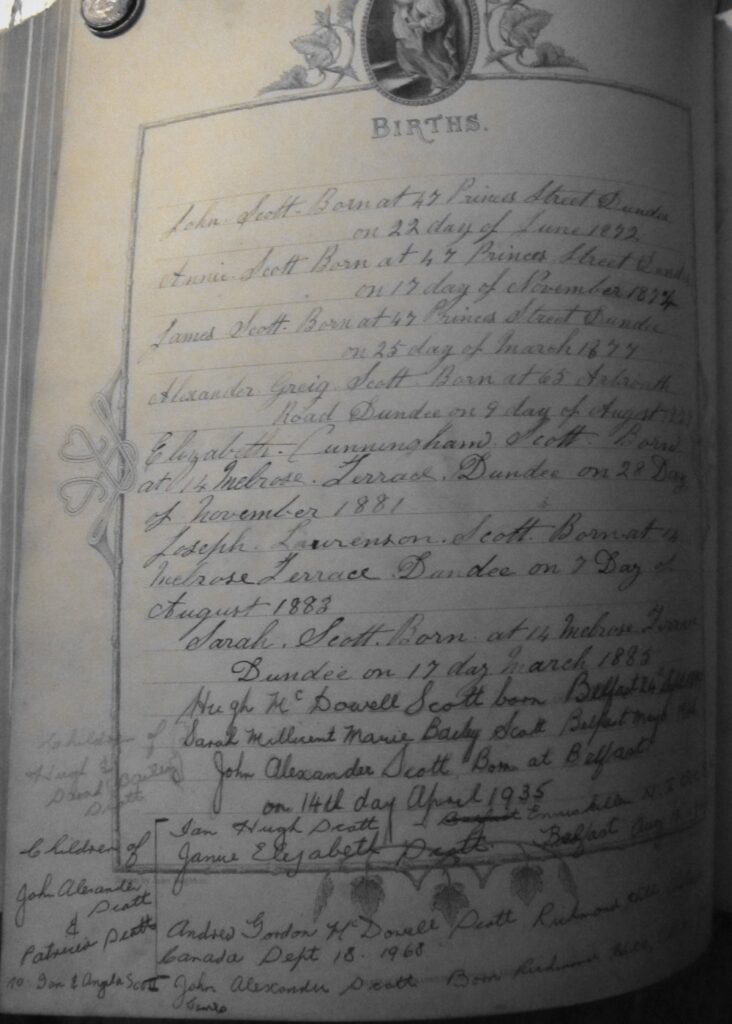 BIRTHS.
John Scott Born at 47 Princes Street Dundee
on 22 day of June 1872
Annie Scott Born at 47 Princes Street Dundee
on 17 day of November 1874
James Scott Born at 47 Princes Street Dundee
on 25 day of March 1877
Alexander Greig Scott Born at 65 Arbroath
Road Dundee on 9 day of August
Elizabeth Cunningham Scott Born
at 14 Melrose Terrace Dundee on 28 Day
of November 1881
Joseph Laurenson Scott Born at 14
Melrose Terrace Dundee on 7 Day of
August 1883
Sarah Scott Born at 14 Melrose Terrace
Dundee on 17 day March 1885
Hugh Mc Dowell Scott born Belfast 24
Sarah Millicent Marie Baily Scott Belfast
John Alexander Scott Born at Belfast
on 14th day April 1935
Children of
Hugh &
Sarah (Bailey)
Scott
Ian Hugh Scott Enniskillen N. I.
Janie Elizabeth Scott Belfast Aug
Children of
John Alexander
Scott
&
Patricia Scott
Andrew Gordon Mc Dowell Scott Richmond Hill
Canada Sept 18. 1968
to Ian & Angela Scott
John Alexander Scott Born Richmond Hill,